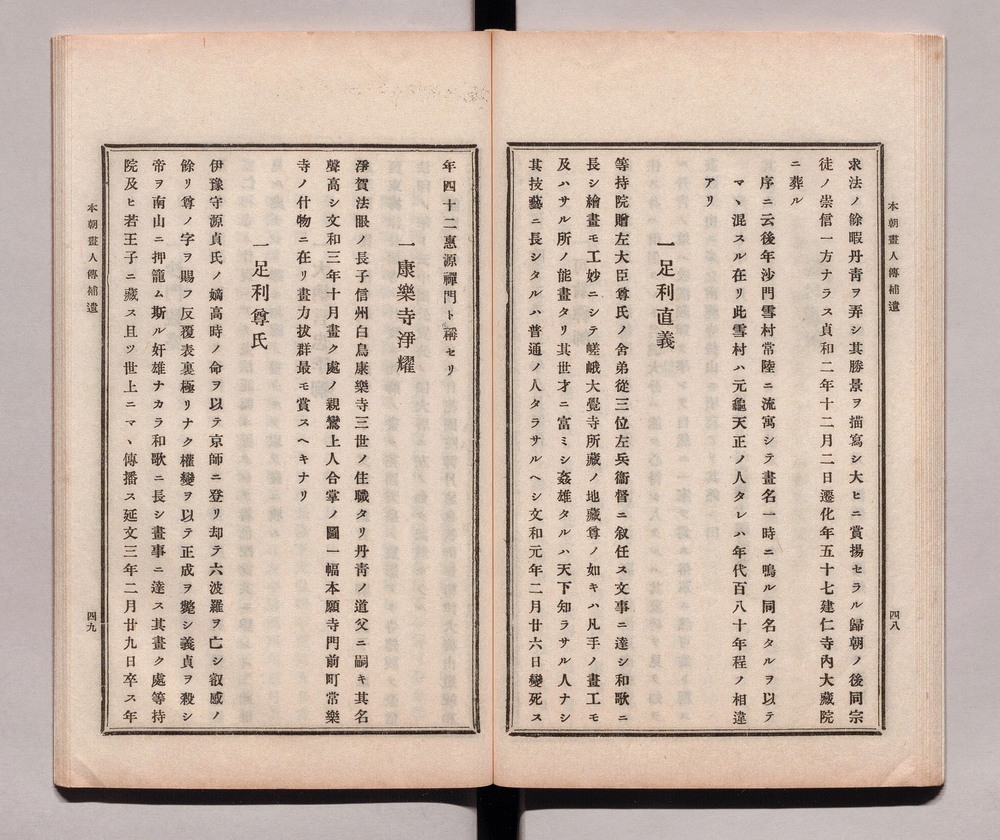 本朝畫人傳補遺
四八
求法ノ餘暇丹靑ヲ弄シ其勝景ヲ描寫シ大ヒニ賞揚セラル歸朝ノ後同宗
徒ノ崇信一方ナラス貞和二年十二月二日遷化年五十七建仁寺內大藏院
ニ葬ル
序ニ云後年沙門雪村常陸ニ流寓シテ畫名一時ニ鳴ル同名タルヲ以テ
マヽ混スル在リ此雪村ハ元龜天正ノ人タレハ年代百八十年程ノ相違
アリ
一足利直義
等持院贈左大臣尊氏ノ舍弟從三位左兵衞督ニ叙任ス文事ニ達シ和歌ニ
長シ繪畫モ工妙ニシテ嵯峨大覺寺所藏ノ地藏尊ノ如キハ凡手ノ畫工モ
及ハサル所ノ能畫タリ其世才ニ富ミシ姦雄タルハ天下知ラサル人ナシ
其技藝ニ長シタルハ普通ノ人タラサルヘシ文和元年二月廿六日變死ス
年四十二惠源禪門ト稱セリ
一康樂寺淨耀
淨賀法眼ノ長子信州白鳥康樂寺三世ノ住職タリ丹靑ノ道父ニ嗣キ其名
聲高シ文和三年十月畫ク處ノ親鸞上人合掌ノ圖一幅本願寺門前町常樂
寺ノ什物ニ在リ畫力拔群最モ賞スヘキナリ
一足利尊氏
伊豫守源貞氏ノ嫡高時ノ命ヲ以テ京師ニ登リ却テ六波羅ヲ亡シ叡感ノ
餘リ尊ノ字ヲ賜フ反覆表裏極リナク權變ヲ以テ正成ヲ斃シ義貞ヲ殺シ
帝ヲ南山ニ押籠ム斯ル奸雄ナカラ和歌ニ長シ畫事ニ達ス其畫ク處等持
院及ヒ若王子ニ藏ス且ツ世上ニマヽ傳播ス延文三年二月廿九日卒ス年
本朝畫人傳補遺
四九